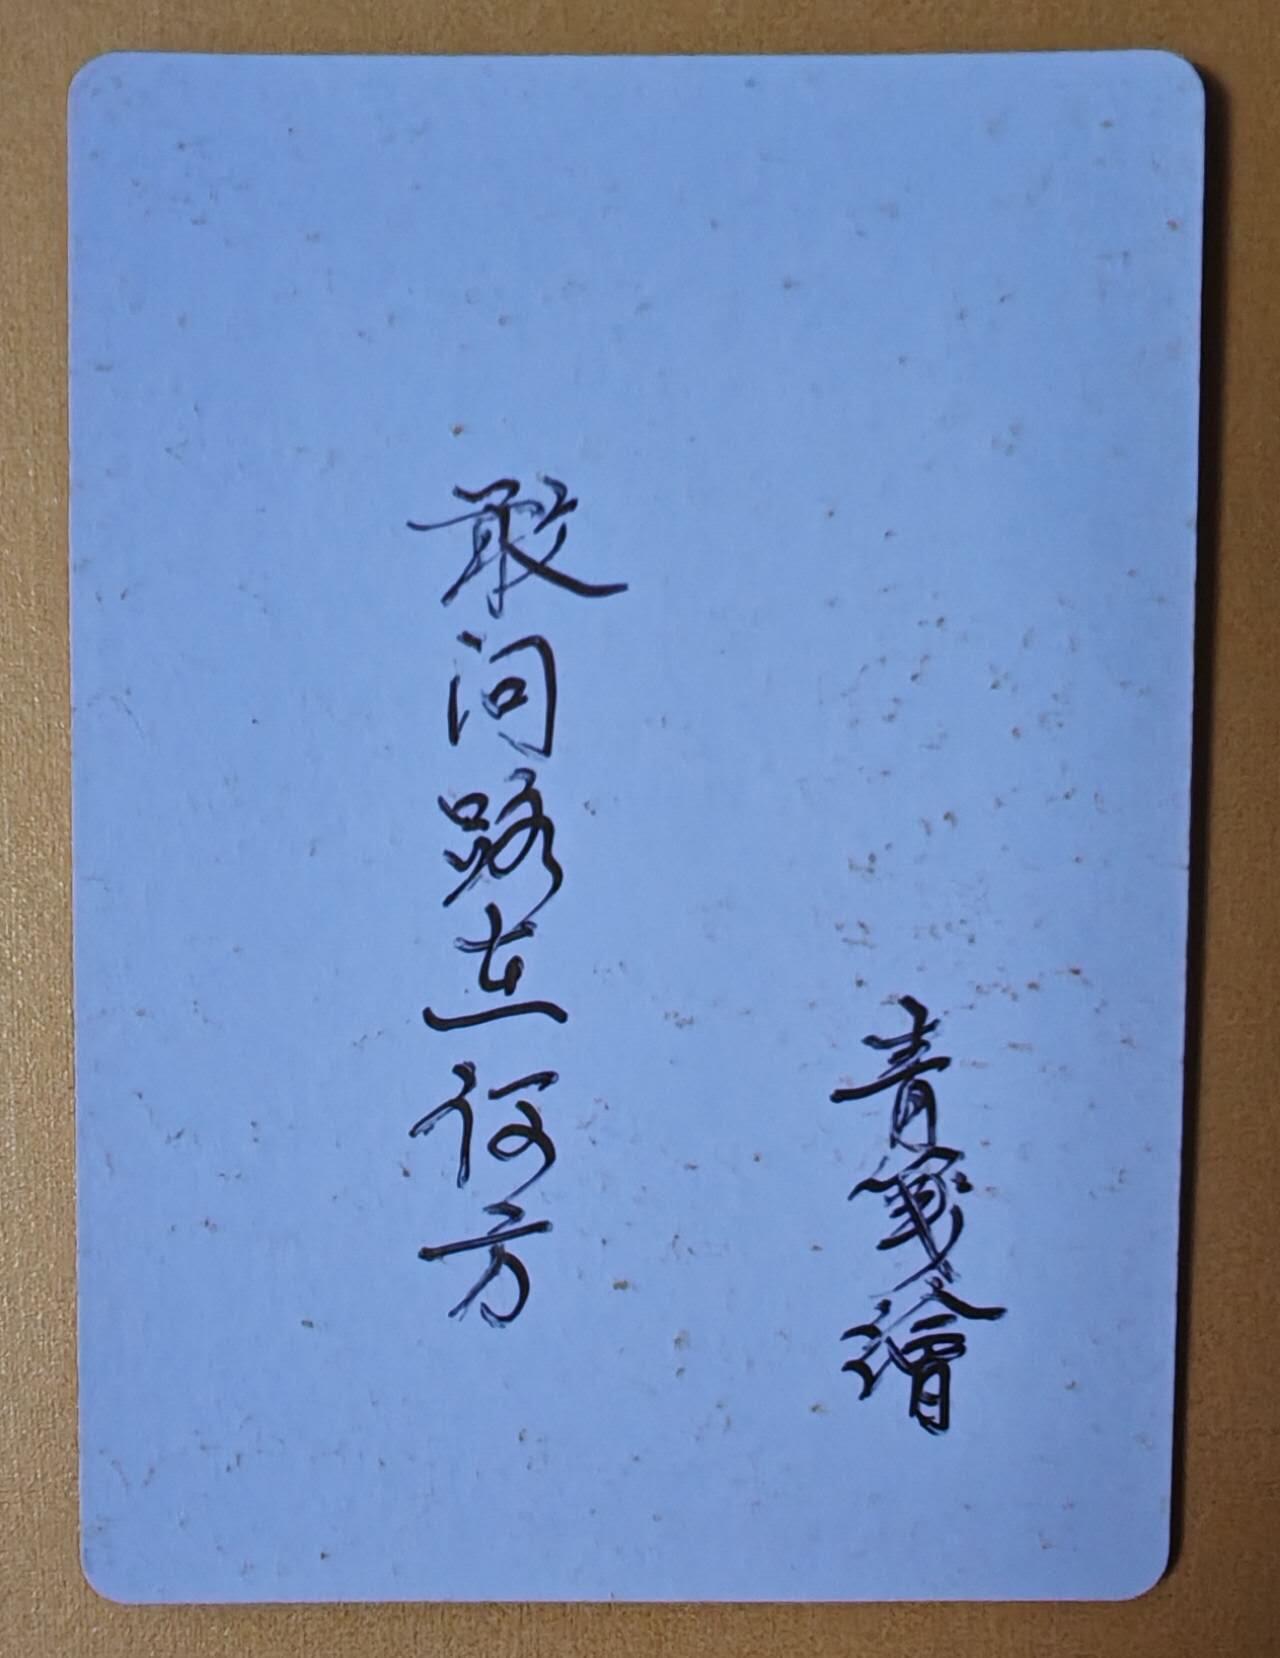 敢问路在何方
青笺绘